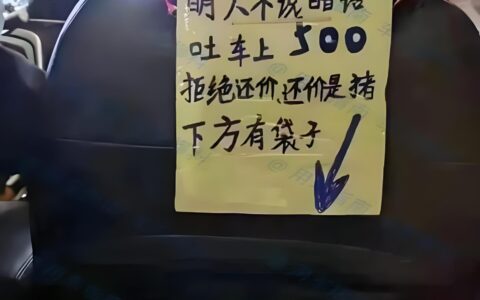 明人不说暗话
吐车上500
拒绝还价、还价是猪
下方有袋子